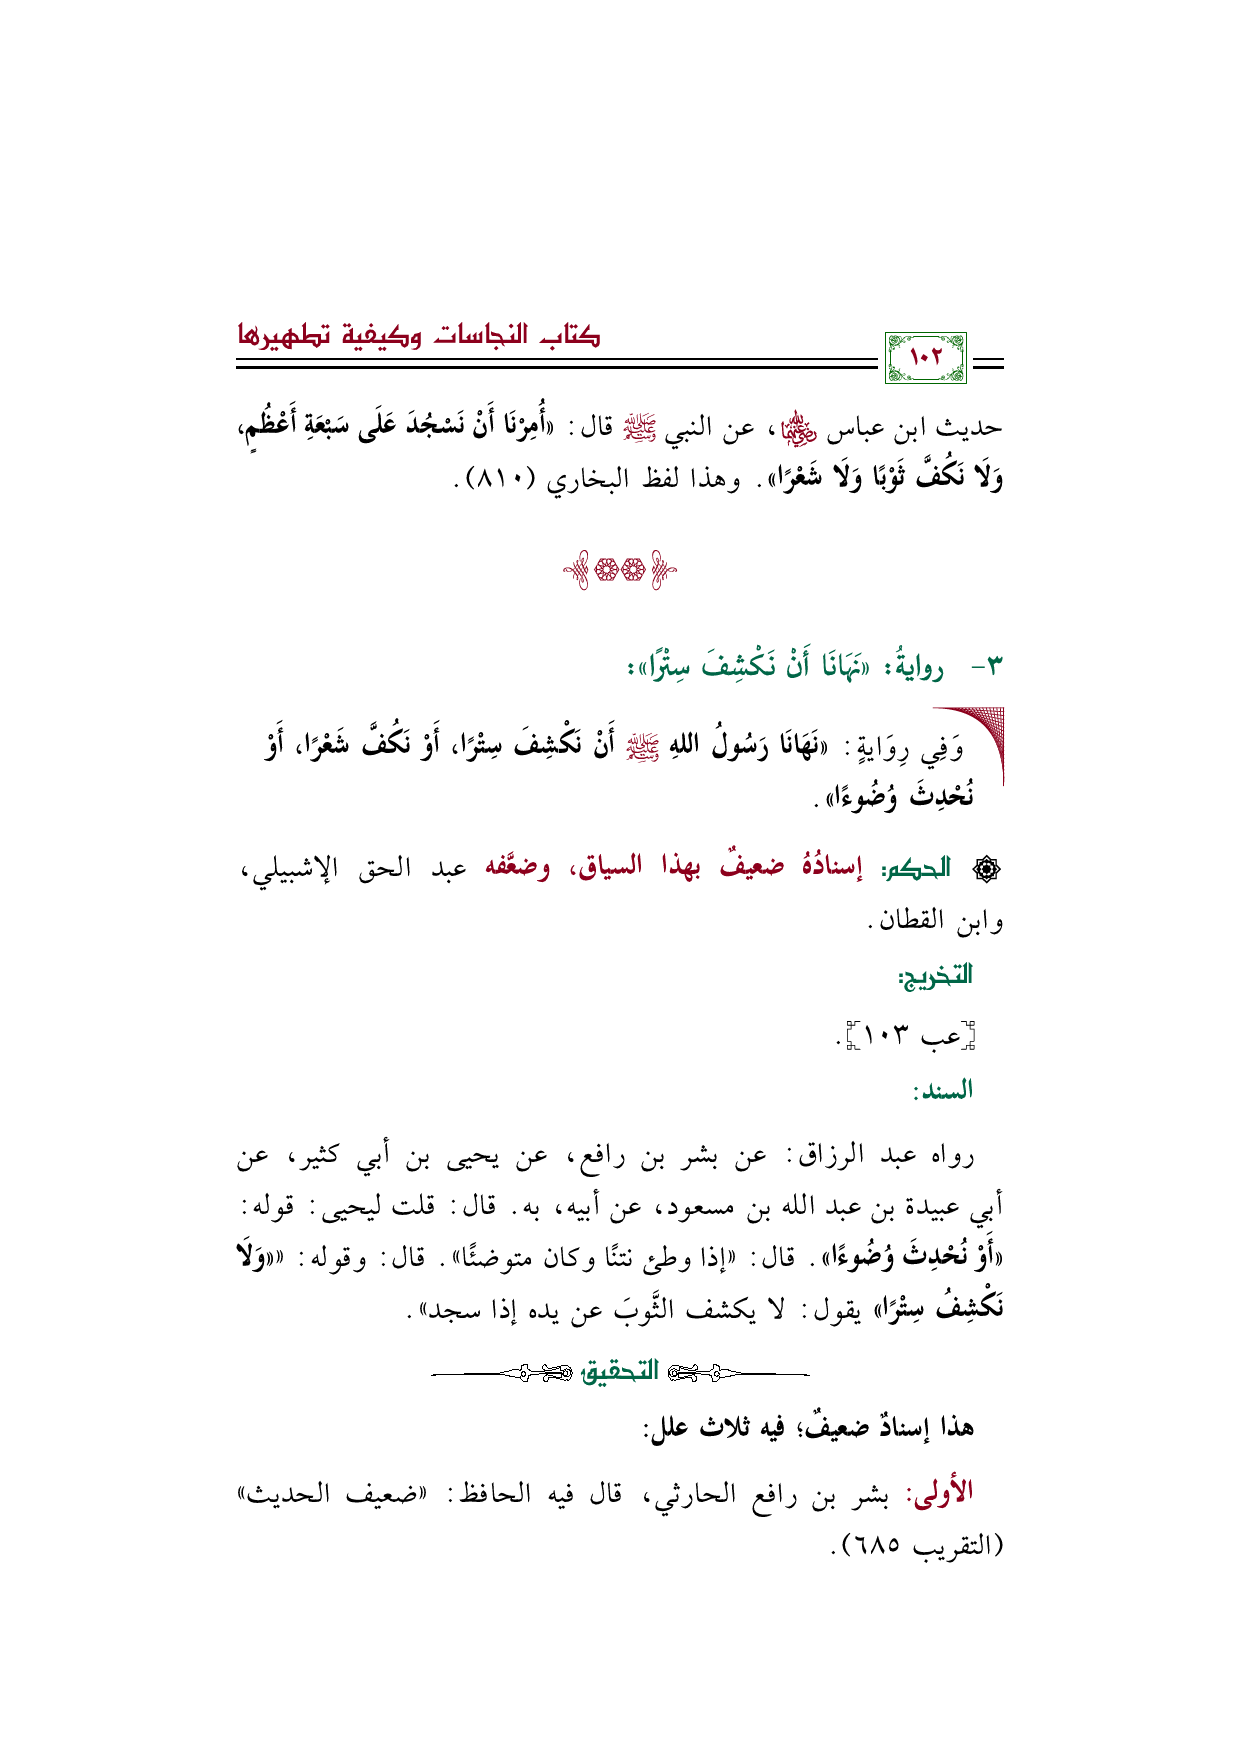 كتاب النجاسات وكيفية تطهيرها
١٠٢
حديث ابن عباس ﵄، عن النبي ﷺ قال: «أُمِرْنَا أَنْ نَسْجُدَ عَلَى سَبْعَةِ أَعْظُمٍ،
وَلَا نَكُفَّ ثَوْبًا وَلَا شَعْرًا». وهذا لفظ البخاري (٨١٠).
٣- روايةُ: «نَهَانَا أَنْ نَكْشِفَ سِتْرًا»:
وَفِي رِوَايةٍ: «نَهَانَا رَسُولُ اللهِ ﷺ أَنْ نَكْشِفَ سِتْرًا، أَوْ نَكُفَّ شَعْرًا، أَوْ
نُحْدِثَ وُضُوءًا».
الحكم: إسنادُهُ ضعيفٌ بهذا السياق، وضعَّفه عبد الحق الإشبيلي،
وابن القطان.
التخريج:
[عب ١٠٣].
السند:
رواه عبد الرزاق: عن بشر بن رافع، عن يحيى بن أبي كثير، عن
أبي عبيدة بن عبد الله بن مسعود، عن أبيه، به. قال: قلت ليحيى: قوله:
«أَوْ نُحْدِثَ وُضُوءًا». قال: «إذا وطئ نتنًا وكان متوضئًا». قال: وقوله: ««وَلَا
نَكْشِفُ سِتْرًا» يقول: لا يكشف الثَّوبَ عن يده إذا سجد».
التحقيق
هذا إسنادٌ ضعيفٌ؛ فيه ثلاث علل:
الأولى: بشر بن رافع الحارثي، قال فيه الحافظ: «ضعيف الحديث»
(التقريب ٦٨٥).